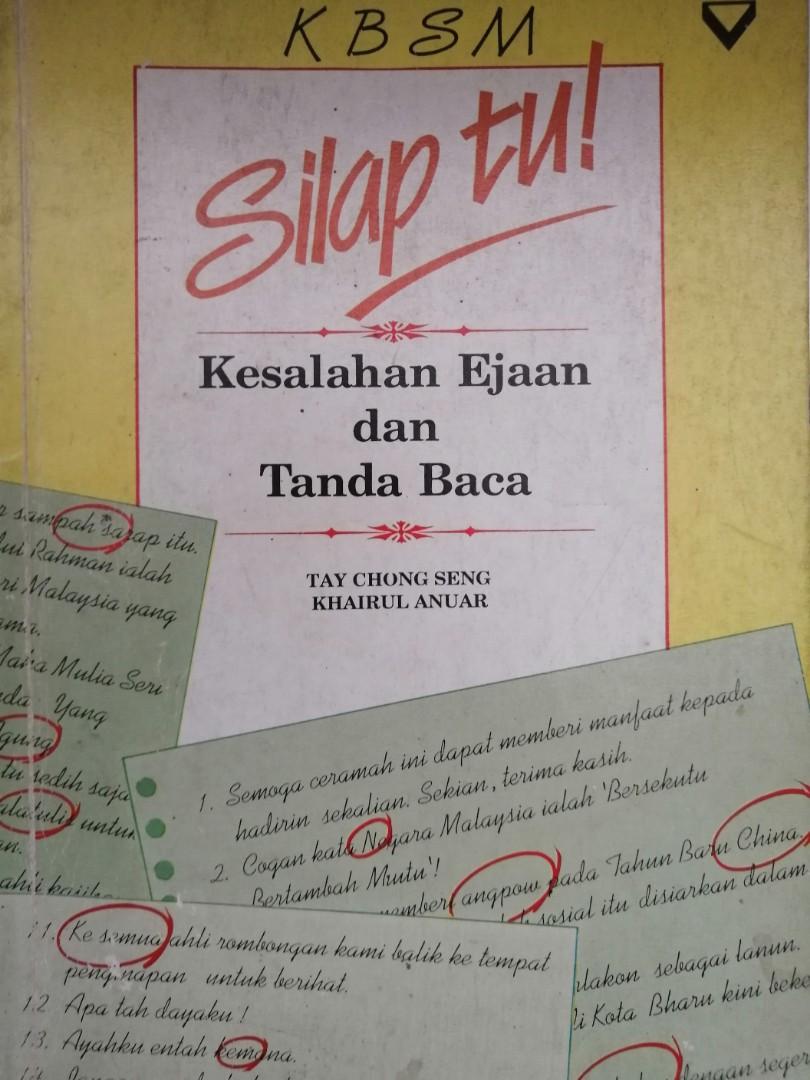 KBSM
Silap tu!
Kesalahan Ejaan
dan
Tanda Baca
TAY CHONG SENG
KHAIRUL ANUAR
sampah sarap itu.
Rahman ialah
Malaysia yang
Mulia Seri
Yang
sedih saja
1. Semoga ceramah ini dapat memberi manfaat kepada
hadirin sekalian. Sekian, terima kasih.
2. Cogan kata Negara Malaysia ialah 'Bersekutu
Bertambah Mutu'!
angpow pada Tahun Baru China.
sosial itu disiarkan dalam
sebagai lanun.
Kota Bharu kini
dengan
11. Ke semua ahli rombongan kami balik ke tempat
penginapan untuk berihat.
12. Apa tah dayaku!
13. Ayahku entah kemana.